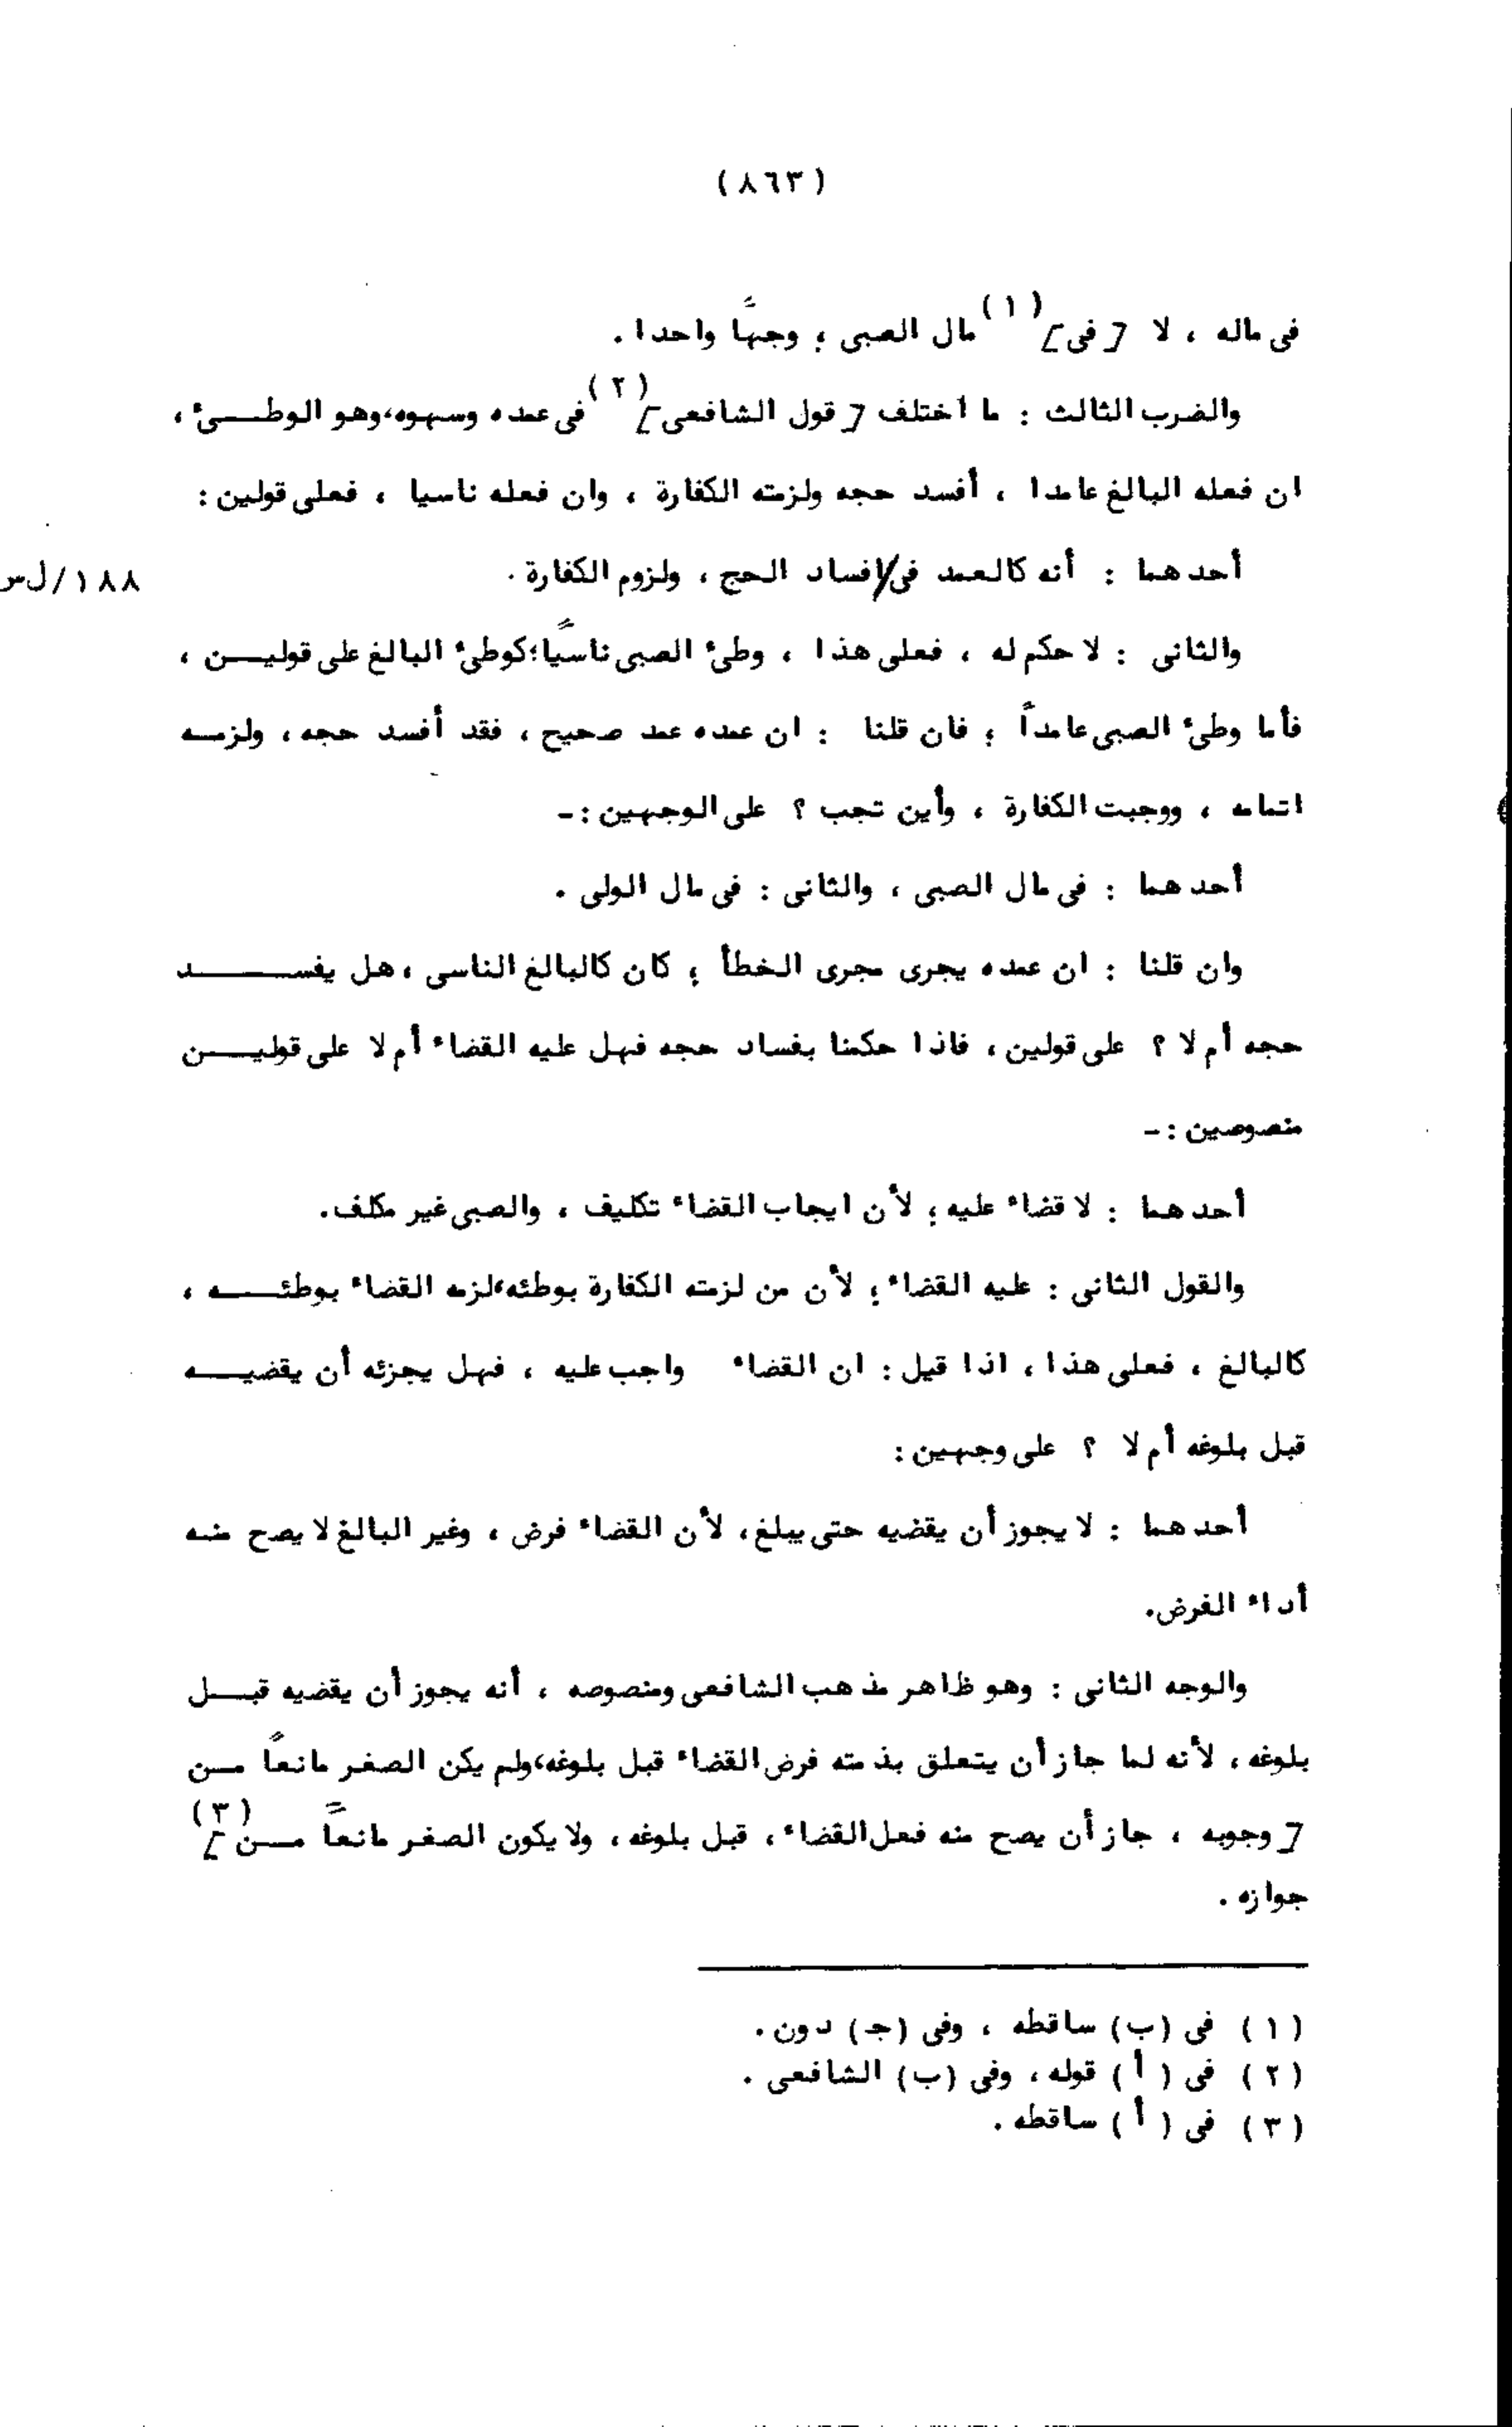 (٨٦٣)
فى ماله ، لا [ فى ] (١) مال الصبى ؛ وجهاً واحدا .
والضرب الثالث : ما اختلف [ قول الشافعى ] (٢) فى عمده وسهوه، وهو الوطـــىء ،
ان فعله البالغ عامدا ، أفسد حجه ولزمته الكفارة ، وان فعله ناسيا ، فعلى قولين :
أحدهما : أنه كالعمد فى/افساد الحج ، ولزوم الكفارة .
١٨٨/ل س
والثانى : لا حكم له ، فعلى هذا ، وطىء الصبى ناسياً؛ كوطىء البالغ على قوليـــن ،
فأما وطىء الصبى عامداً ؛ فان قلنا : ان عمده عمد صحيح ، فقد أفسد حجه ، ولزمـــه
اتمامه ، ووجبت الكفارة ، وأين تجب ؟ على الوجهين :-
أحدهما : فى مال الصبى ، والثانى : فى مال الولى .
وان قلنا : ان عمده يجرى مجرى الخطأ ؛ كان كالبالغ الناسى ، هل يفســـــد
حجه أم لا ؟ على قولين ، فاذا حكمنا بفساد حجه فهل عليه القضاء أم لا على قوليـــن
منصوصين :-
أحدهما : لا قضاء عليه ؛ لأن ايجاب القضاء تكليف ، والصبى غير مكلف.
والقول الثانى : عليه القضاء ؛ لأن من لزمته الكفارة بوطئه، لزمه القضاء بوطئـــه ،
كالبالغ ، فعلى هذا ، اذا قيل : ان القضاء واجب عليه ، فهل يجزئه أن يقضيـــه
قبل بلوغه أم لا ؟ على وجهين :
أحدهما : لا يجوز أن يقضيه حتى يبلغ، لأن القضاء فرض ، وغير البالغ لا يصح منه
أداء الفرض.
والوجه الثانى : وهو ظاهر مذهب الشافعى ومنصوصه ، أنه يجوز أن يقضيه قبـــل
بلوغه ، لأنه لما جاز أن يتعلق بذمته فرض القضاء قبل بلوغه، ولم يكن الصغر مانعاً مـــن
[ وجوبه ، جاز أن يصح منه فعل القضاء ، قبل بلوغه ، ولا يكون الصغر مانعاً مـــن ] (٣)
جوازه .
(١) فى (ب) ساقطه ، وفى (جـ) دون .
(٢) فى (أ) قوله ، وفى (ب) الشافعى .
(٣) فى (أ) ساقطه .